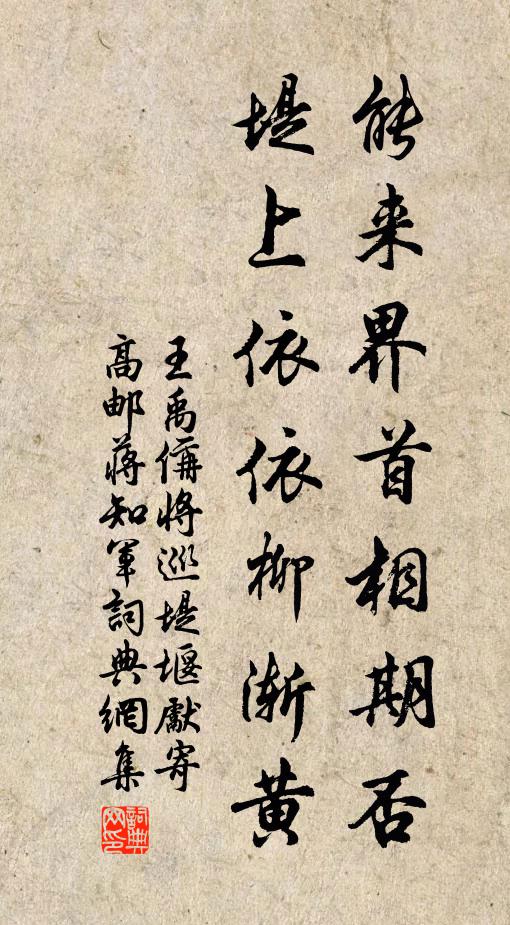 能来界首相期否
堤上依依柳渐黄
王禹偁将巡堤堰獻寄
高邮蒋知军詞典網集
詞典网印